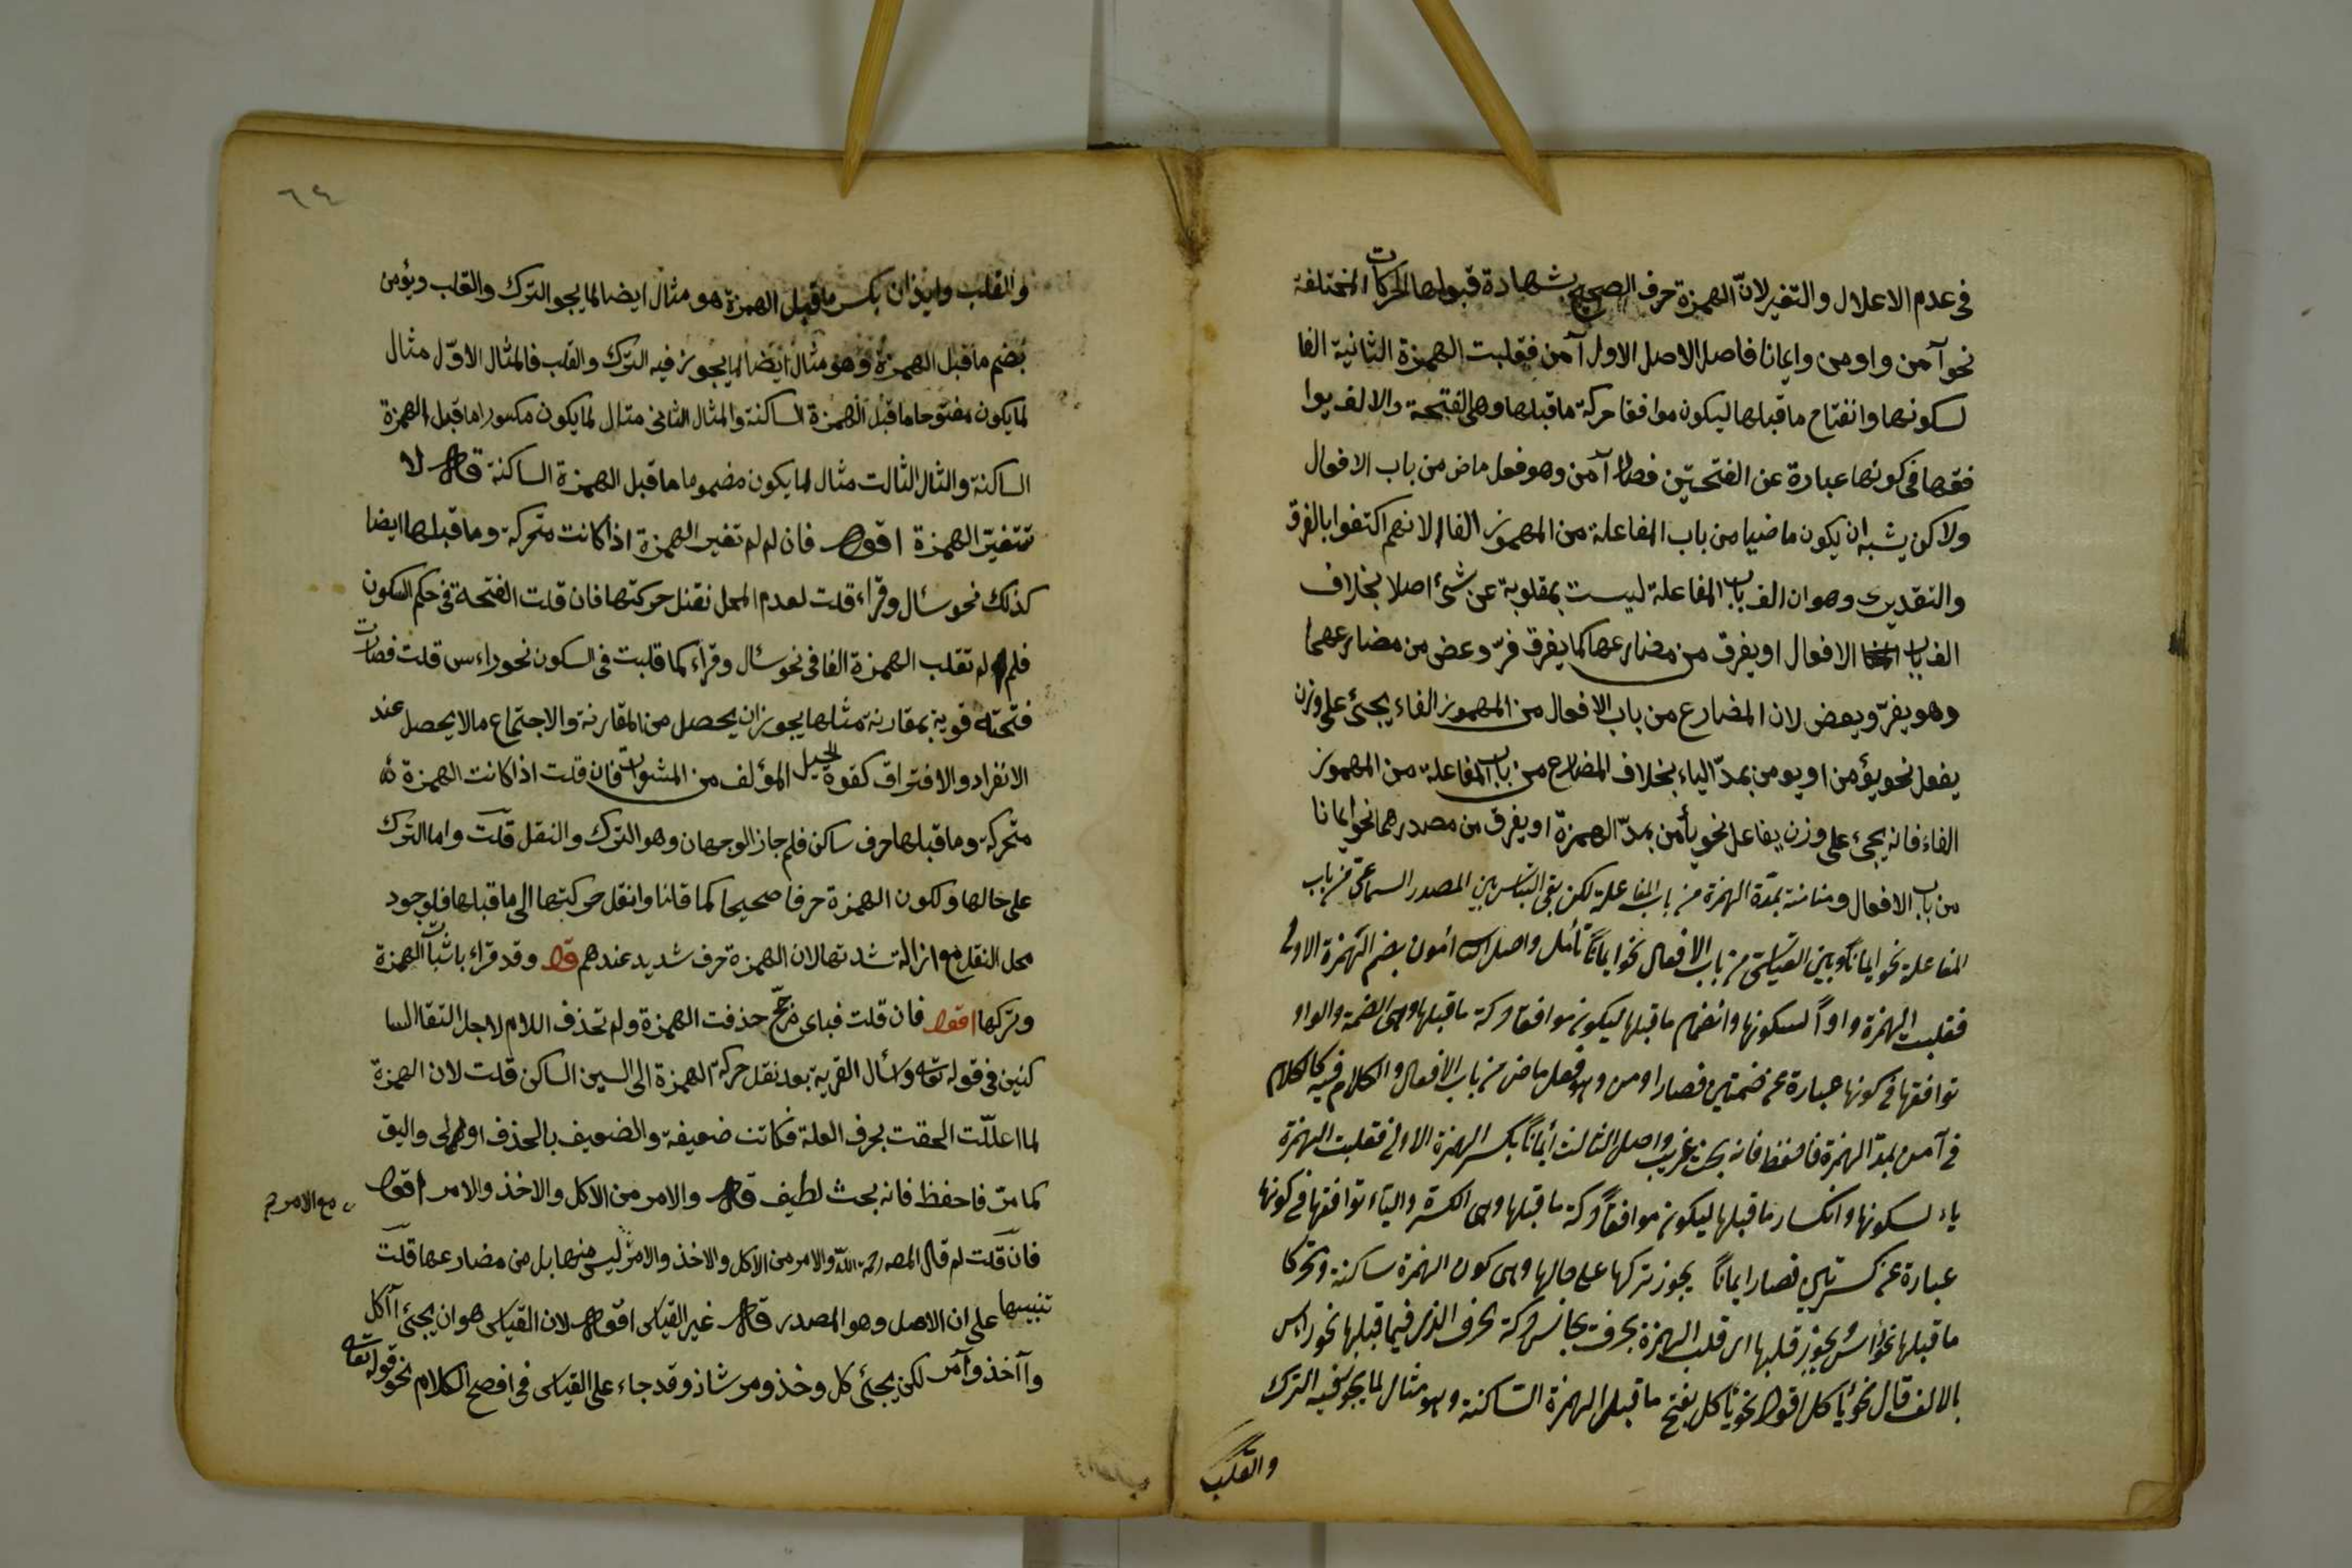 فى عدم الاعلال والتغير لانّ الهمزة حرف الصحيح بشهادة قبولها الحركات المختلفة
نحو آمن و اومن و ايمانا فاصل الاصل الاول آمن فقلبت الهمزة الثانية الفا
لسكونها وانفتاح ما قبلها ليكون موافقا حركة ما قبلها وهى الفتحة والالف يوا
فقها فى كونها عبارة عن الفتحتين فصار آمن وهو فعل ماض من باب الافعال
ولاكن يشبه ان يكون ماضيا من باب المفاعلة من المهموز الفاء لانهم اكتفوا بالفرق
والتقديرى وهو ان الف باب المفاعلة ليست بمقلوبة عن شئ اصلا بخلاف
الف باب الافعال او يفرق من مضارعها كما يفرق فرّ وعض من مضارعهما
وهو يفرّ ويعض لان المضارع من باب الافعال من المهموز الفاء يجئ على وزن
يفعل نحو يؤمن او يومن بمدّ الياء بخلاف المضارع من باب المفاعلة من المهموز
الفاء فانه يجئ على وزن يفاعل نحو يأمن بمدّ الهمزة او يفرق من مصدرهما نحو ايمانا
من باب الافعال ومنامنة بمدّة الهمزة من باب المفاعلة لكن بقى التباس بين المصدر السماعى من باب
المفاعلة نحو ايمانا وبين القياسى من باب الافعال نحو ايمانا تأمل واصل اائمون بضم الهمزة الاولى
فقلبت الهمزة واوا لسكونها وانضمام ما قبلها ليكون موافقا حركة ما قبلها وهى الضمة والواو
توافقها فى كونها عبارة عن ضمتين فصار اومن وهو فعل ماض من باب الافعال والكلام فيه كالكلام
فى آمن بمد الهمزة فاحفظ فانه بحث غريب واصل الثالث أئمانا بكسر الهمزة الاولى فقلبت الهمزة
ياء لسكونها وانكسار ما قبلها ليكون موافقا حركة ما قبلها وهى الكسرة والياء توافقها فى كونها
عبارة عن كسرتين فصار ايمانا يجوز تركها على حالها وهى كون الهمزة ساكنة وتحركا
ما قبلها نحو رأس ويجوز قلبها اى قلب الهمزة بحرف يجانس حركة حرف الذى فيما قبلها نحو راس
بالالف قال نحو يأكل اقول نحو يأكل بفتح ما قبل الهمزة الساكنة وهو مثال لما يجوز فيه الترك
والقلب
٦٤
والقلب وايذان بكسر ما قبل الهمزة هو مثال ايضا لما يجو الترك والقلب ويؤمن
بضم ما قبل الهمزة وهو مثال ايضا لما يجوز فيه الترك والقلب فالمثال الاوّل مثال
لما يكون مفتوحا ما قبل الهمزة الساكنة والمثال الثانى مثال لما يكون مكسورا ما قبل الهمزة
الساكنة والثال الثالث مثال لما يكون مضموما ما قبل الهمزة الساكنة قال لا
تتغيّر الهمزة اقول فان لم لم تغير الهمزة اذا كانت متحركة وما قبلها ايضا
كذلك نحو سئال وقراء قلت لعدم المحل نقل حركتها فان قلت الفتحة فى حكم السكون
فلم لم تقلب الهمزة الفا فى نحو سئال وقراء كما قلبت فى السكون نحو راءس قلت فصارت
فتحته قوية بمقارنة مثلها يجوز ان يحصل من المقارنة والاجتماع ما لا يحصل عند
الانفراد والافتراق كقوة الحبل المؤلف من فان قلت اذا كانت الهمزة
متحركة وما قبلها حرف ساكن فلم جاز الوجهان وهو الترك والنقل قلت واما الترك
على حالها ولكون الهمزة حرفا صحيحا كما قلنا وانقل حركتها الى ما قبلها فلوجود
محل النقل مع ازالة شدتها لان الهمزة حرف شديد عندهم قال وقد قراء باثبات الهمزة
وتركها اقول فان قلت فباى مرجّح حذفت الهمزة ولم تحذف اللام لاجل التقاء السا
كنين فى قوله تعه وائسال القرية بعد نقل حركة الهمزة الى السين الساكن قلت لان الهمزة
لما اعللّت الحقت بحرف العلة فكانت ضعيفة والضعيف بالحذف اولى واليق
كما مرّ فاحفظ فانه بحث لطيف قال والامر من الاكل والاخذ والامر اقول
مع الامر
فان قلت لم قال المصر رحمه الله والامر من الاكل والاخذ والامر ليس منها بل من مضارعها قلت
تنبيها على ان الاصل وهو المصدر قال غير القياس اقول لان القياس هو ان يجئ اآكل
واآخذ واآمر لكن يجئ كل وخذ ومر شاذ وقد جاء على القياس فى افصح الكلام نحو قوله تعالى